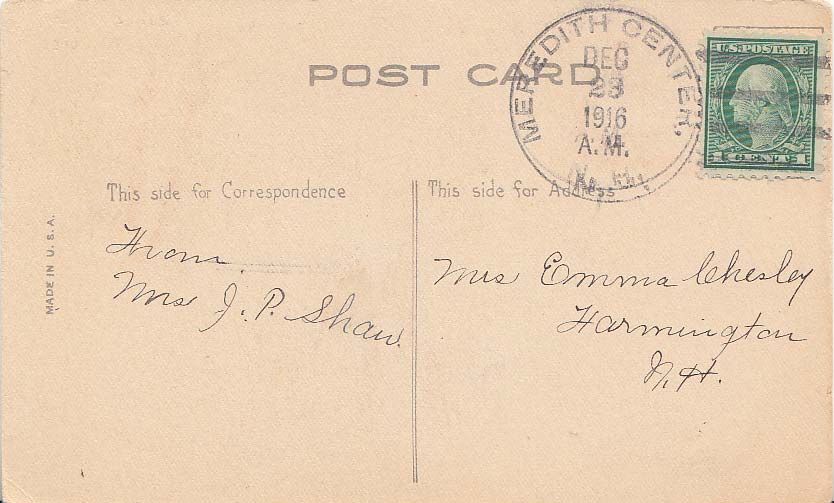 POST CARD
MEREDITH CENTER,
DEC
23
1916
A.M.
N.H.
U.S. POSTAGE
1 CENT 1
This side for Correspondence
This side for Address
MADE IN U.S.A.
From
Mrs J. P. Shaw.
Mrs Emma Chesley
Farmington
N.H.